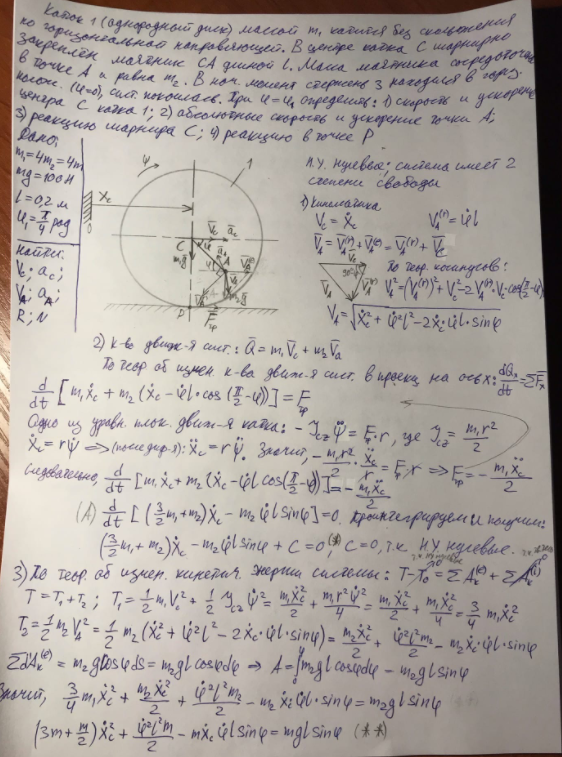 Каток 1 (однородный диск) массой m₁ катится без скольжения
по горизонтальной направляющей. В центре катка C шарнирно
закреплён маятник CA длиной l. Масса маятника сосредоточена
в точке A и равна m₂. В нач. момент стержень 3 находился в гориз.
полож. (φ=0), сист. покоилась. При φ=φ₁ определить: 1) скорость и ускорение
центра C катка 1; 2) абсолютные скорость и ускорение точки A;
3) реакцию шарнира C; 4) реакцию в точке P.
Дано:
m₁=4m₂=4m
mg=100H
l=0,2 м
φ₁=π/4 рад
Найти:
V_C; a_C;
V_A; a_A;
R; N
ψ
1
X_c
0
C
φ
V̄_c
ā_c
m₁ḡ
A
V̄_A
m₂ḡ
P
F̄_тр
Н.У. нулевые; система имеет 2
степени свободы
1) Кинематика
V_c = ẋ_c V_A^(r) = φ̇l
V̄_A = V̄_A^(r) + V̄_A^(e) = V̄_A^(r) + V̄_c
V̄_c
V̄_A
V̄_A^(r)
90°-φ
По теор. косинусов:
V_A² = (V_A^(r))² + V_c² - 2V_A^(r)·V_c·cos(π/2-φ)
V_A = √(ẋ_c² + φ̇²l² - 2ẋ_c·φ̇l·sinφ)
2) К-во движ-я сист.: Q̄ = m₁V̄_c + m₂V̄_a
По теор. об измен. к-ва движ-я сист. в проекц. на ось x: dQₓ/dt = ΣF̄ₓ
d/dt [m₁ẋ_c + m₂(ẋ_c - φ̇l·cos(π/2-φ))] = F_тр
Одно из уравн. плоск. движ-я катка: -J_cz ψ̈ = F_тр·r, где J_cz = m₁r²/2
ẋ_c = rψ̇ ⟹ (после диф-я): ẍ_c = rψ̈. Значит, -m₁r²/2 · ẍ_c/r = F_тр·r ⟹ F_тр = -m₁ẍ_c/2
Следовательно, d/dt [m₁ẋ_c + m₂(ẋ_c - φ̇l cos(π/2-φ))] = -m₁ẍ_c/2
(A) d/dt [(3/2 m₁ + m₂)ẋ_c - m₂φ̇l sinφ] = 0. Проинтегрируем и получим:
(3/2 m₁ + m₂)ẋ_c - m₂φ̇l sinφ + C = 0, (*) C=0, т.к. Н.У. нулевые.
3) По теор. об измен. кинетич. энергии системы: T - T₀ = ΣA_k^(e) + ΣA_k^(i)
T = T₁ + T₂; T₁ = 1/2 m₁V_c² + 1/2 J_cz ψ̇² = m₁ẋ_c²/2 + m₁r²ψ̇²/4 = m₁ẋ_c²/2 + m₁ẋ_c²/4 = 3/4 m₁ẋ_c²
T₂ = 1/2 m₂V_A² = 1/2 m₂(ẋ_c² + φ̇²l² - 2ẋ_c·φ̇l·sinφ) = m₂ẋ_c²/2 + φ̇²l²m₂/2 - m₂ẋ_c·φ̇l·sinφ
ΣdA_k^(e) = m₂g cosφ ds = m₂gl cosφdφ ⟹ A = ∫₀ m₂gl cosφdφ - m₂gl sinφ
Значит, 3/4 m₁ẋ_c² + m₂ẋ_c²/2 + φ̇²l²m₂/2 - m₂ẋ_cφ̇l·sinφ = m₂gl sinφ
(3m + m/2)ẋ_c² + φ̇²l²m/2 - mẋ_cφ̇l sinφ = mgl sinφ (**)